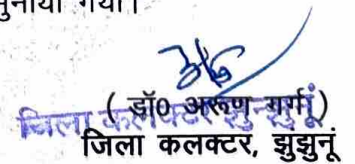 सुनाया गया।
( डॉ0 अरूण गर्ग )
जिला कलक्टर झुन्झुनूं
जिला कलक्टर, झुझुनूं